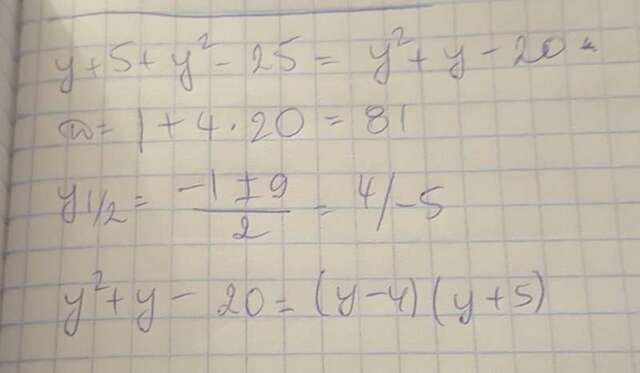 y + 5 + y² - 25 = y² + y - 20 =
D = 1 + 4 · 20 = 81
y 1/2 = (-1 ± 9)/2 = 4/-5
y² + y - 20 = (y - 4)(y + 5)